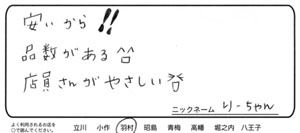 安いから!!
品数がある^^
店員さんがやさしい^^
ニックネーム りーちゃん
よく利用されるお店を
○で囲んでください。
立川 小作 羽村 昭島 青梅 高幡 堀之内 八王子